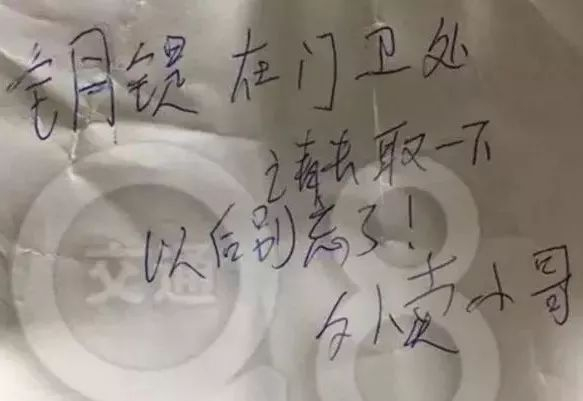 钥匙在门卫处
去取一下
以后别忘了!
外卖小哥
交通
8